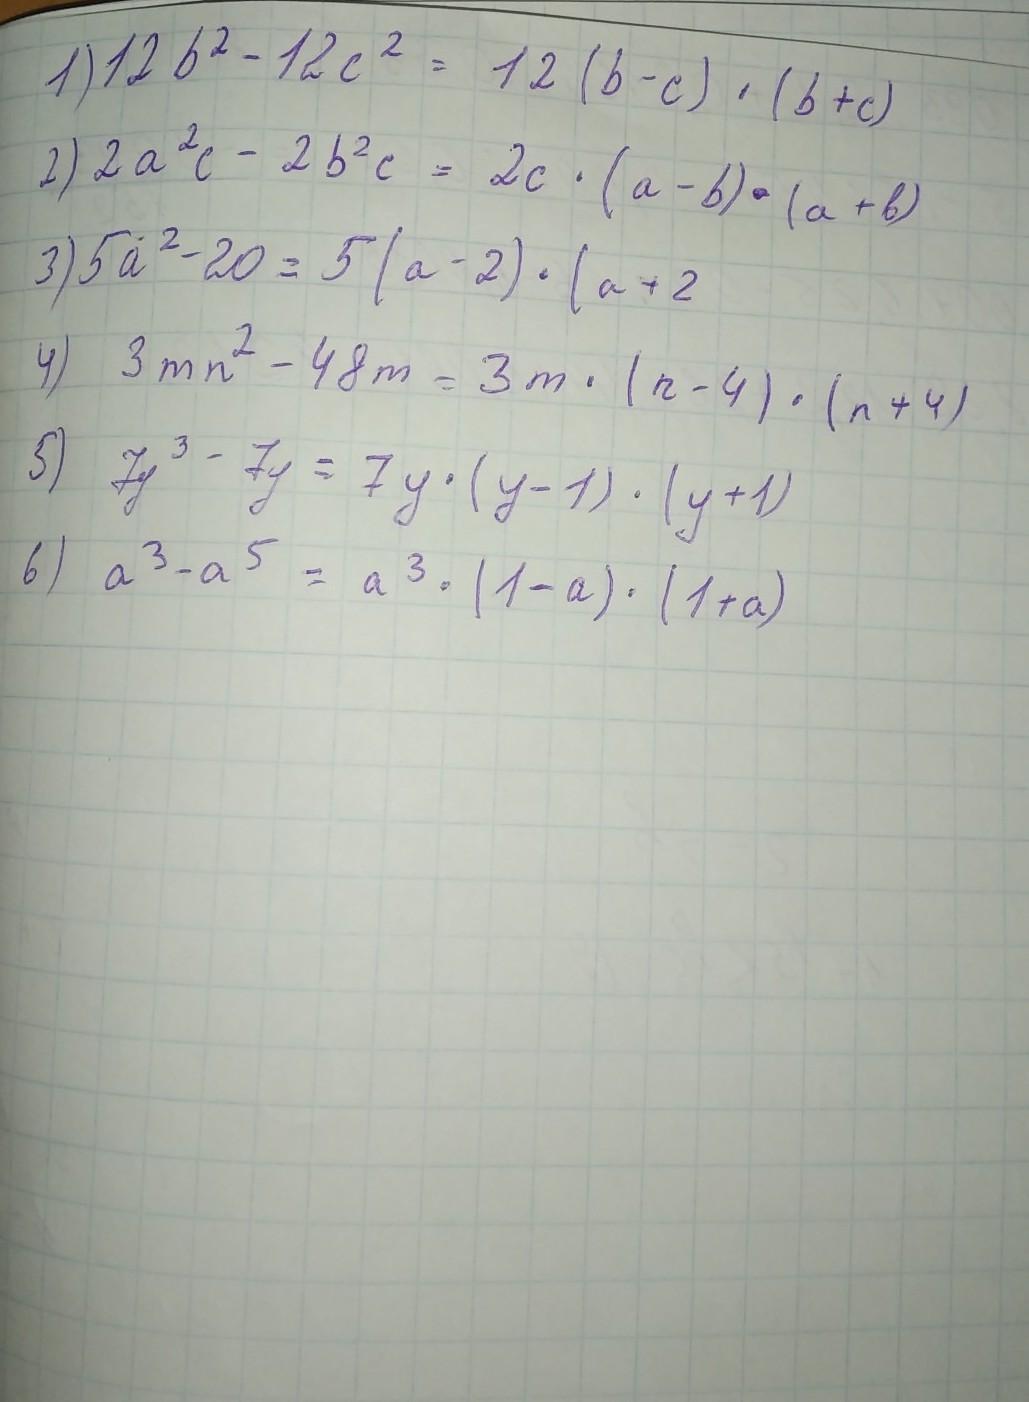 1) 12b² - 12c² = 12(b-c) · (b+c)
2) 2a²c - 2b²c = 2c · (a-b) · (a+b)
3) 5a² - 20 = 5(a-2) · (a+2
4) 3mn² - 48m = 3m · (n-4) · (n+4)
5) 7y³ - 7y = 7y · (y-1) · (y+1)
6) a³ - a⁵ = a³ · (1-a) · (1+a)